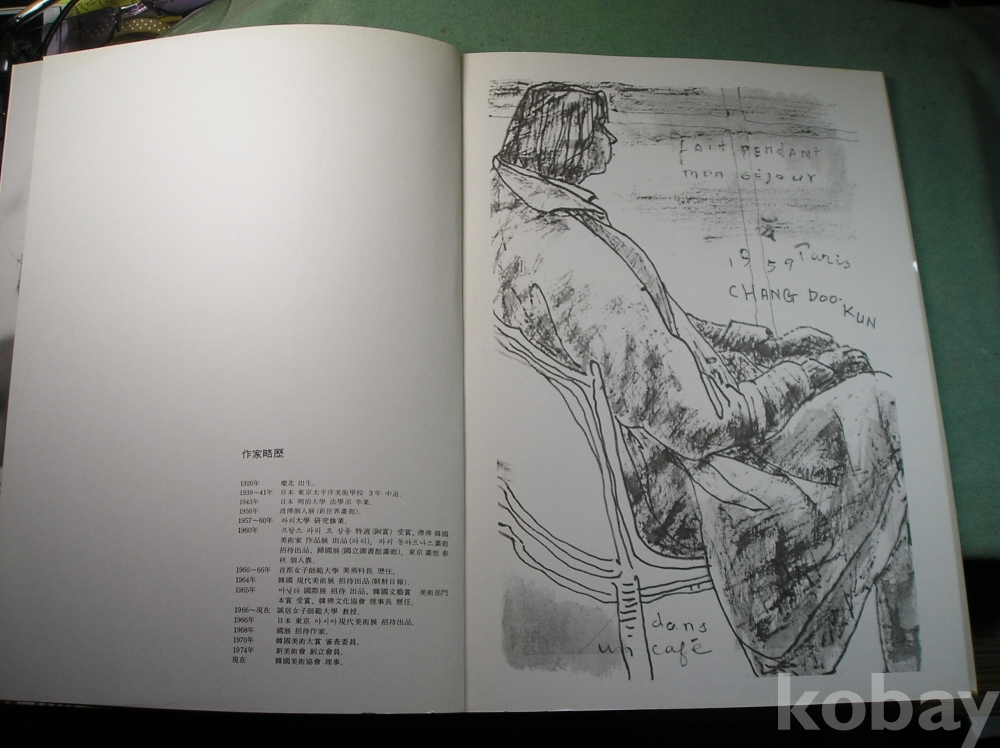 作家略歷
1920年 慶北 出生.
1939~41年 日本 東京太平洋美術學校 3年 中退.
1943年 日本 明治大學 法學部 卒業.
1956年 渡佛個人展(新世界畵廊).
1957~60年 파리大學 硏究修業.
1960年 르살롱 特選(銅賞) 受賞, 滯佛 韓國
美術家 作品展 出品(파리), 파리 몽마르나스畵廊
招待出品, 歸國展(國立圖書館畵廊), 東京 畵廊 春
秋 個人展.
1960~66年 首都女子師範大學 美術科長 歷任.
1964年 韓國 現代美術展 招待出品(朝鮮日報).
1965年 마닐라 國際展 招待 出品, 韓國文藝賞 美術部門
本賞 受賞, 韓佛文化協會 理事長 歷任.
1966~現在 誠信女子師範大學 敎授.
1966年 日本 東京 아시아現代美術展 招待出品.
1968年 國展 招待作家.
1970年 韓國美術大賞 審査委員.
1974年 新美術會 創立會員.
現在 韓國美術協會 理事.
fait pendant
mon séjour
1959 Paris
CHANG DOO-
KUN
dans
un café
kobay